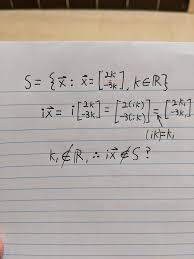 S = {x⃗: x⃗ = [2k -3k], k∈ℝ}
ix⃗ = i[2k -3k] = [2(ik) -3(ik)] = [2k₁ -3k₁]
(ik)=k₁
k₁ ∉ ℝ, ∴ ix⃗ ∉ S?